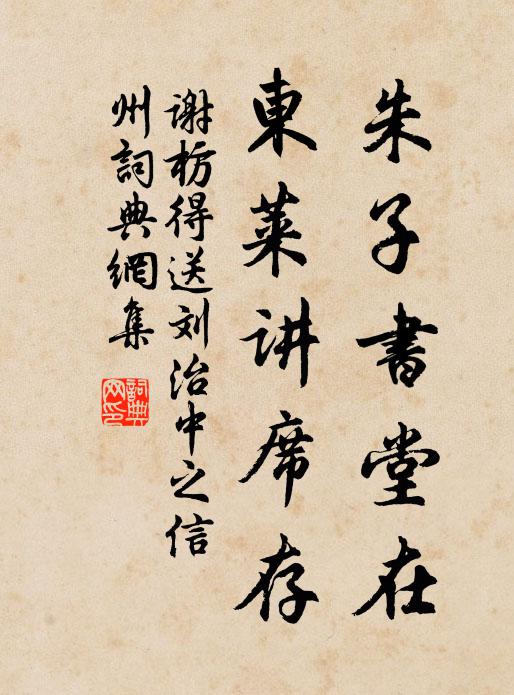 朱子書堂在
東莱讲席存
谢枋得送刘治中之信
州詞典網集
詞典
网印